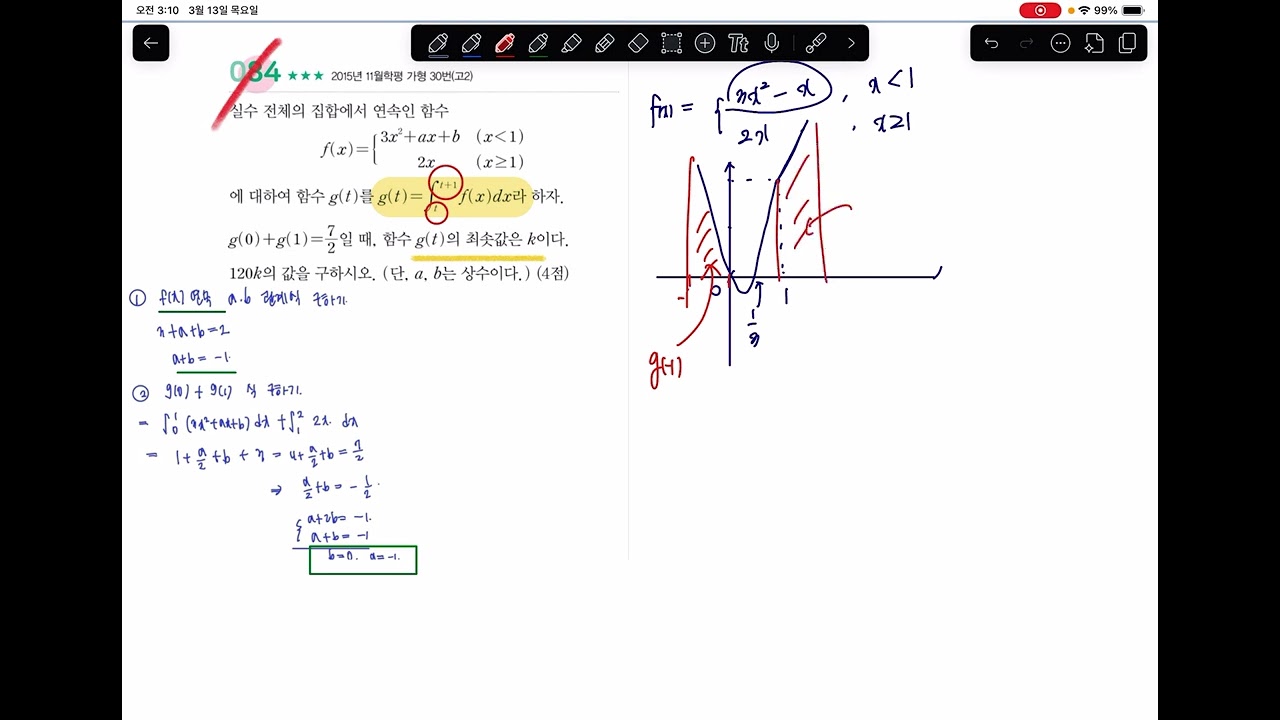 오전 3:10 3월 13일 목요일
99%
Tt
084 ★★★ 2015년 11월학평 가형 30번(고2)
실수 전체의 집합에서 연속인 함수
f(x)={3x²+ax+b (x<1)
2x (x≥1)
에 대하여 함수 g(t)를 g(t)=∫ₜᵗ⁺¹ f(x)dx라 하자.
g(0)+g(1)=7/2일 때, 함수 g(t)의 최솟값은 k이다.
120k의 값을 구하시오. (단, a, b는 상수이다.) (4점)
① f(x) 연속 a.b 관계식 구하기.
3+a+b=2
a+b=-1.
② g(0)+g(1) 식 구하기.
= ∫₀¹ (3x²+ax+b) dx + ∫₁² 2x. dx
= 1+a/2+b+3 = 4+a/2+b = 7/2
⇒ a/2+b = -1/2.
{ a+2b = -1.
a+b = -1
b=0. a=-1.
f(x) = { 3x²-x , x<1
2x , x≥1
-1 0 1
1/3
g(-1)